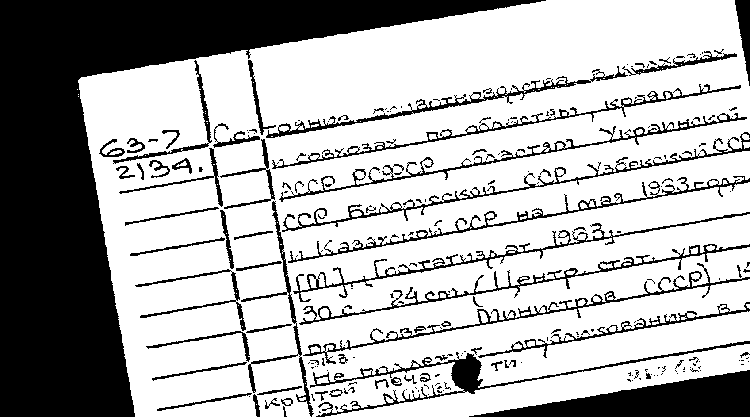 63-7
2134.
Состояние животноводства в колхозах
и совхозах по областям, краям и
АССР РСФСР, областям Украинской
ССР, Белорусской ССР, Узбекской ССР
и Казахской ССР на 1 мая 1963 года
[М]., Госстатиздат, 1963г.
30 с. 24 см. (Центр. стат. упр.
при Совете Министров СССР).
экз.
Не подлежит опубликованию в
крытой печа ти.
Экз.